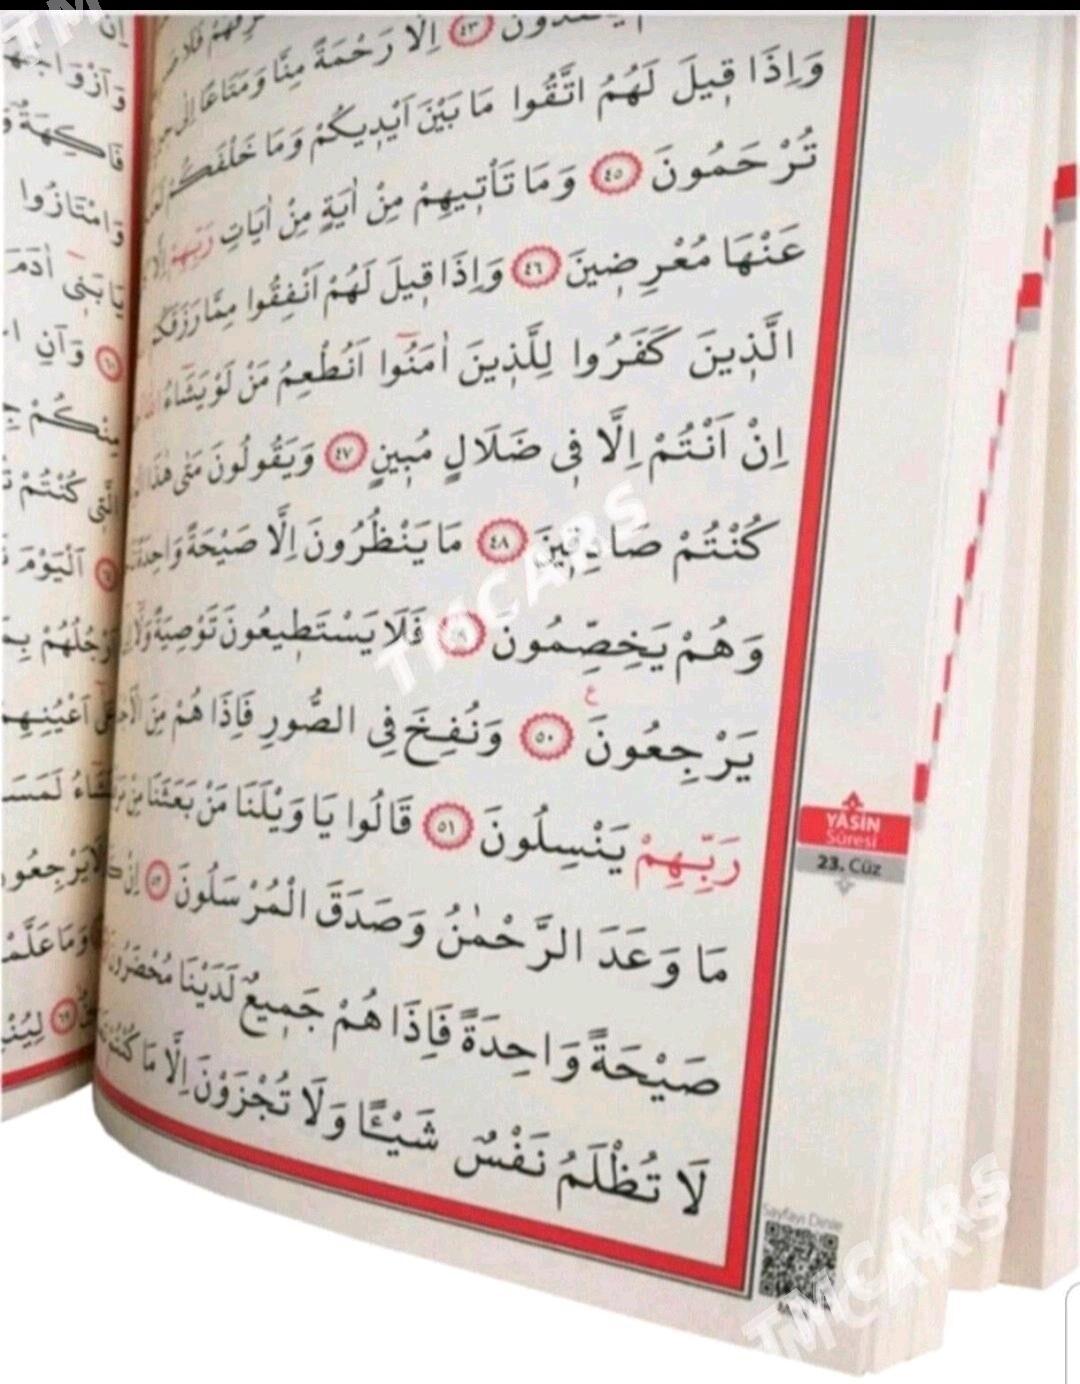 اِلَّا رَحْمَةً مِنَّا وَمَتَاعًا اِلٰى ﴿٤٣﴾
وَاِذَا قٖيلَ لَهُمُ اتَّقُوا مَا بَيْنَ اَيْدٖيكُمْ وَمَا خَلْفَكُمْ
تُرْحَمُونَ ﴿٤٥﴾ وَمَا تَأْتٖيهِمْ مِنْ اٰيَةٍ مِنْ اٰيَاتِ رَبِّهِمْ اِلَّا
عَنْهَا مُعْرِضٖينَ ﴿٤٦﴾ وَاِذَا قٖيلَ لَهُمْ اَنْفِقُوا مِمَّا رَزَقَكُمُ
الَّذٖينَ كَفَرُوا لِلَّذٖينَ اٰمَنُٓوا اَنُطْعِمُ مَنْ لَوْ يَشَٓاءُ
اِنْ اَنْتُمْ اِلَّا فٖي ضَلَالٍ مُبٖينٍ ﴿٤٧﴾ وَيَقُولُونَ مَتٰى هٰذَا
كُنْتُمْ صَادِقٖينَ ﴿٤٨﴾ مَا يَنْظُرُونَ اِلَّا صَيْحَةً وَاحِدَةً
وَهُمْ يَخِصِّمُونَ ﴿٤٩﴾ فَلَا يَسْتَطٖيعُونَ تَوْصِيَةً وَلَٓا
يَرْجِعُونَ ﴿٥٠﴾ وَنُفِخَ فِي الصُّورِ فَاِذَا هُمْ مِنَ
رَبِّهِمْ يَنْسِلُونَ ﴿٥١﴾ قَالُوا يَا وَيْلَنَا مَنْ بَعَثَنَا مِنْ
مَا وَعَدَ الرَّحْمٰنُ وَصَدَقَ الْمُرْسَلُونَ ﴿٥٢﴾ اِنْ
صَيْحَةً وَاحِدَةً فَاِذَا هُمْ جَمٖيعٌ لَدَيْنَا مُحْضَرُونَ
لَا تُظْلَمُ نَفْسٌ شَيْـًٔا وَلَا تُجْزَوْنَ اِلَّا مَا كُنْتُمْ
YÂSİN
Sûresi
23. Cüz
Sayfayı Dinle
فَاكِهَةٌ
وَامْتَازُوا
يَا بَنٖٓي اٰدَمَ
وَاَنِ
مِنْكُمْ
كُنْتُمْ
اَلْيَوْمَ
TMCARS
TMCARS
TMCARS